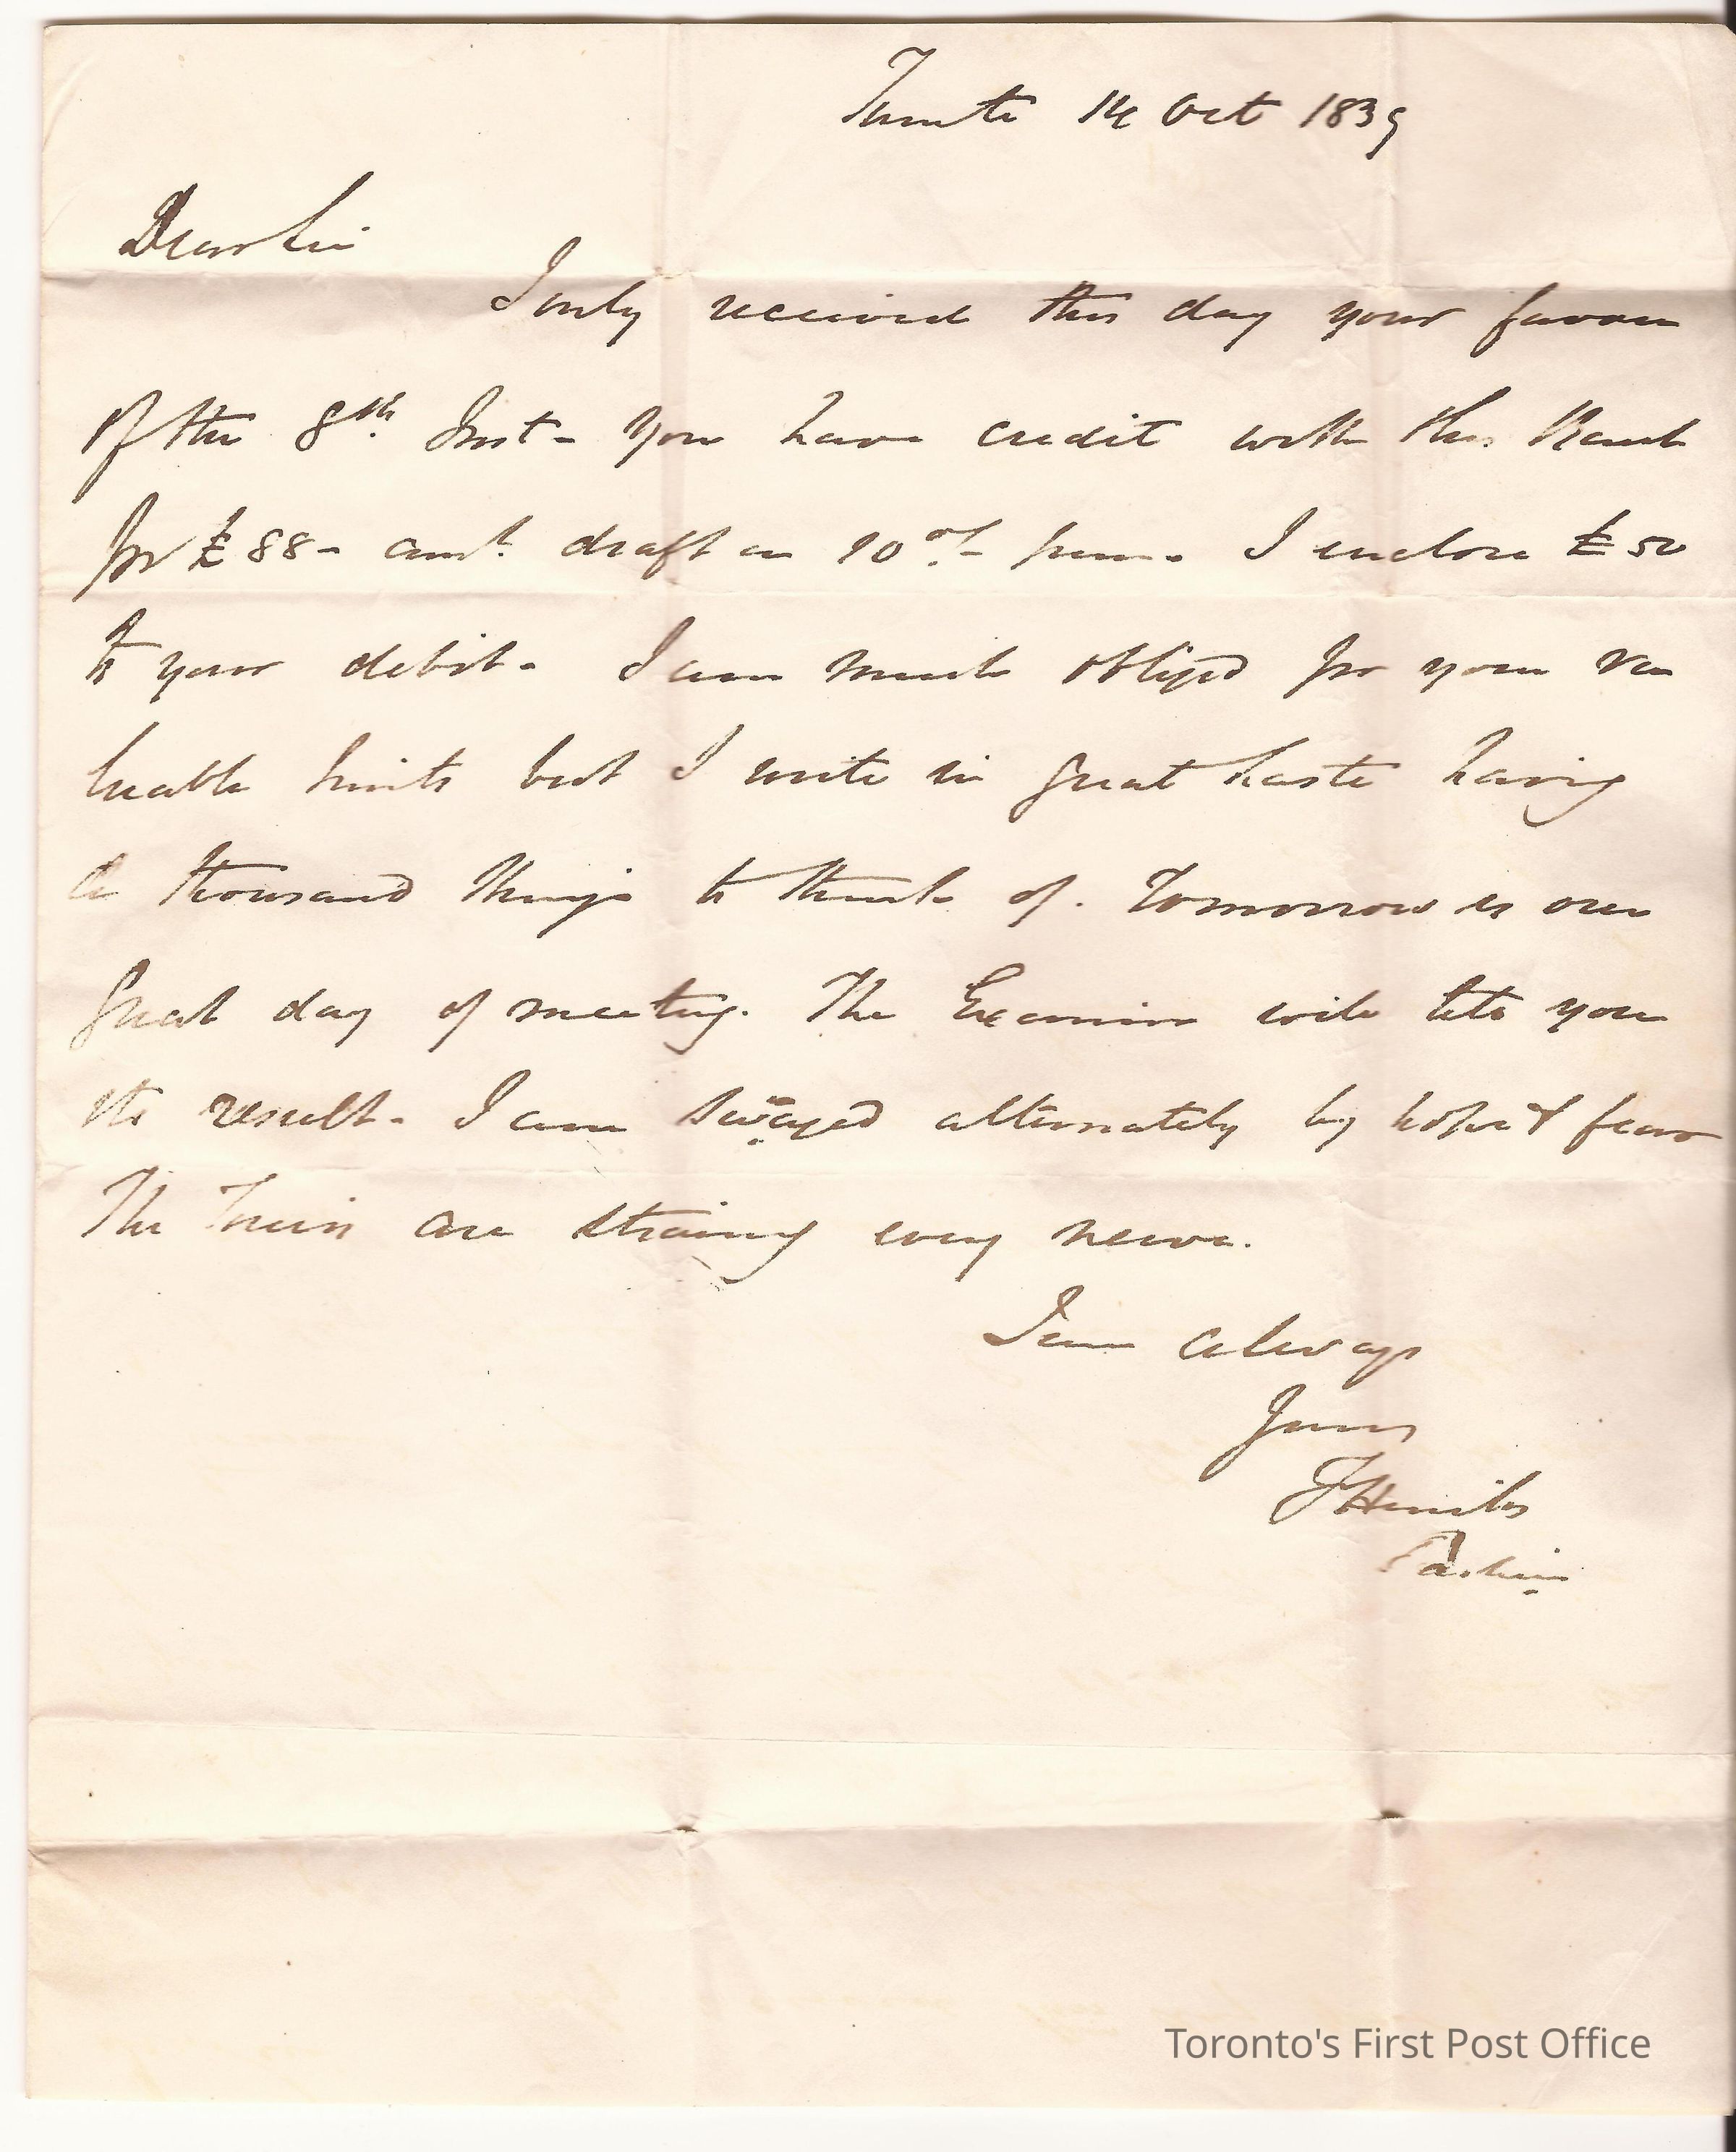 Toronto 14 Oct 1839
Dear Sir
I only received this day your favour
of the 8th Inst- You have credit with this Bank
for £88- amt. draft on 10 % prem. I enclose £50
to your debit- I am much obliged for your va
luable hints but I write in great haste having
a thousand things to think of. Tomorrow is our
great day of meeting. The Examiner will tell you
the result- I am swayed alternately by hope & fear
The Tories are straining every nerve.
I am always
Yours
F Hincks
Cashier
Toronto's First Post Office